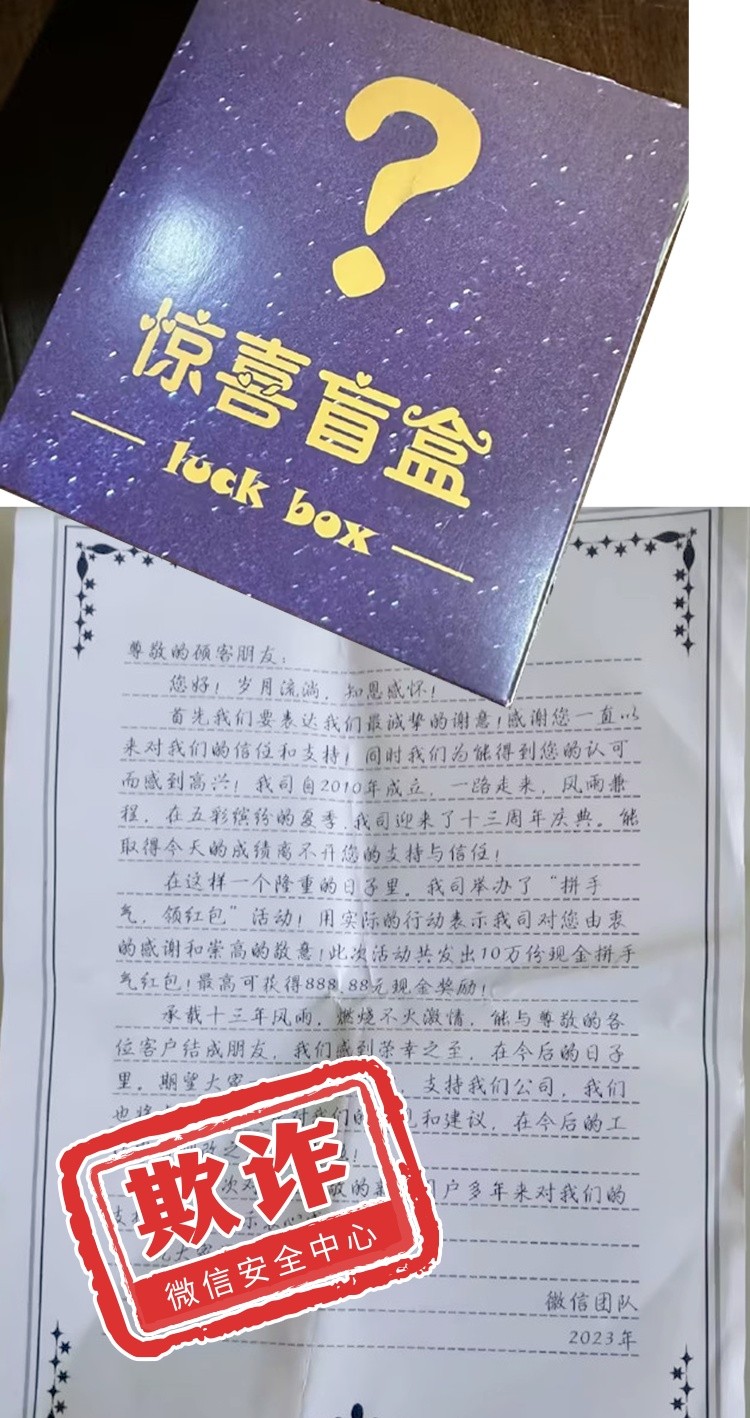 ?
惊喜盲盒
luck box
尊敬的顾客朋友：
您好！岁月流淌，知恩感怀！
首先我们要表达我们最诚挚的谢意！感谢您一直以
来对我们的信任和支持！同时我们为能得到您的认可
而感到高兴！我司自2010年成立，一路走来，风雨兼
程，在五彩缤纷的夏季，我司迎来了十三周年庆典。能
取得今天的成绩离不开您的支持与信任！
在这样一个隆重的日子里。我司举办了“拼手
气，领红包”活动！用实际的行动表示我司对您由衷
的感谢和崇高的敬意！此次活动共发出10万份现金拼手
气红包！最高可获得888.88元现金奖励！
承载十三年风雨，燃烧不火激情，能与尊敬的各
位客户结成朋友，我们感到荣幸之至，在今后的日子
里。期望大家 支持我们公司，我们
也将 对我们的 见和建议，在今后的工
改之
次对 敬的 户多年来对我们的
支持 示衷心
祝大家
欺诈
微信安全中心
微信团队
2023年